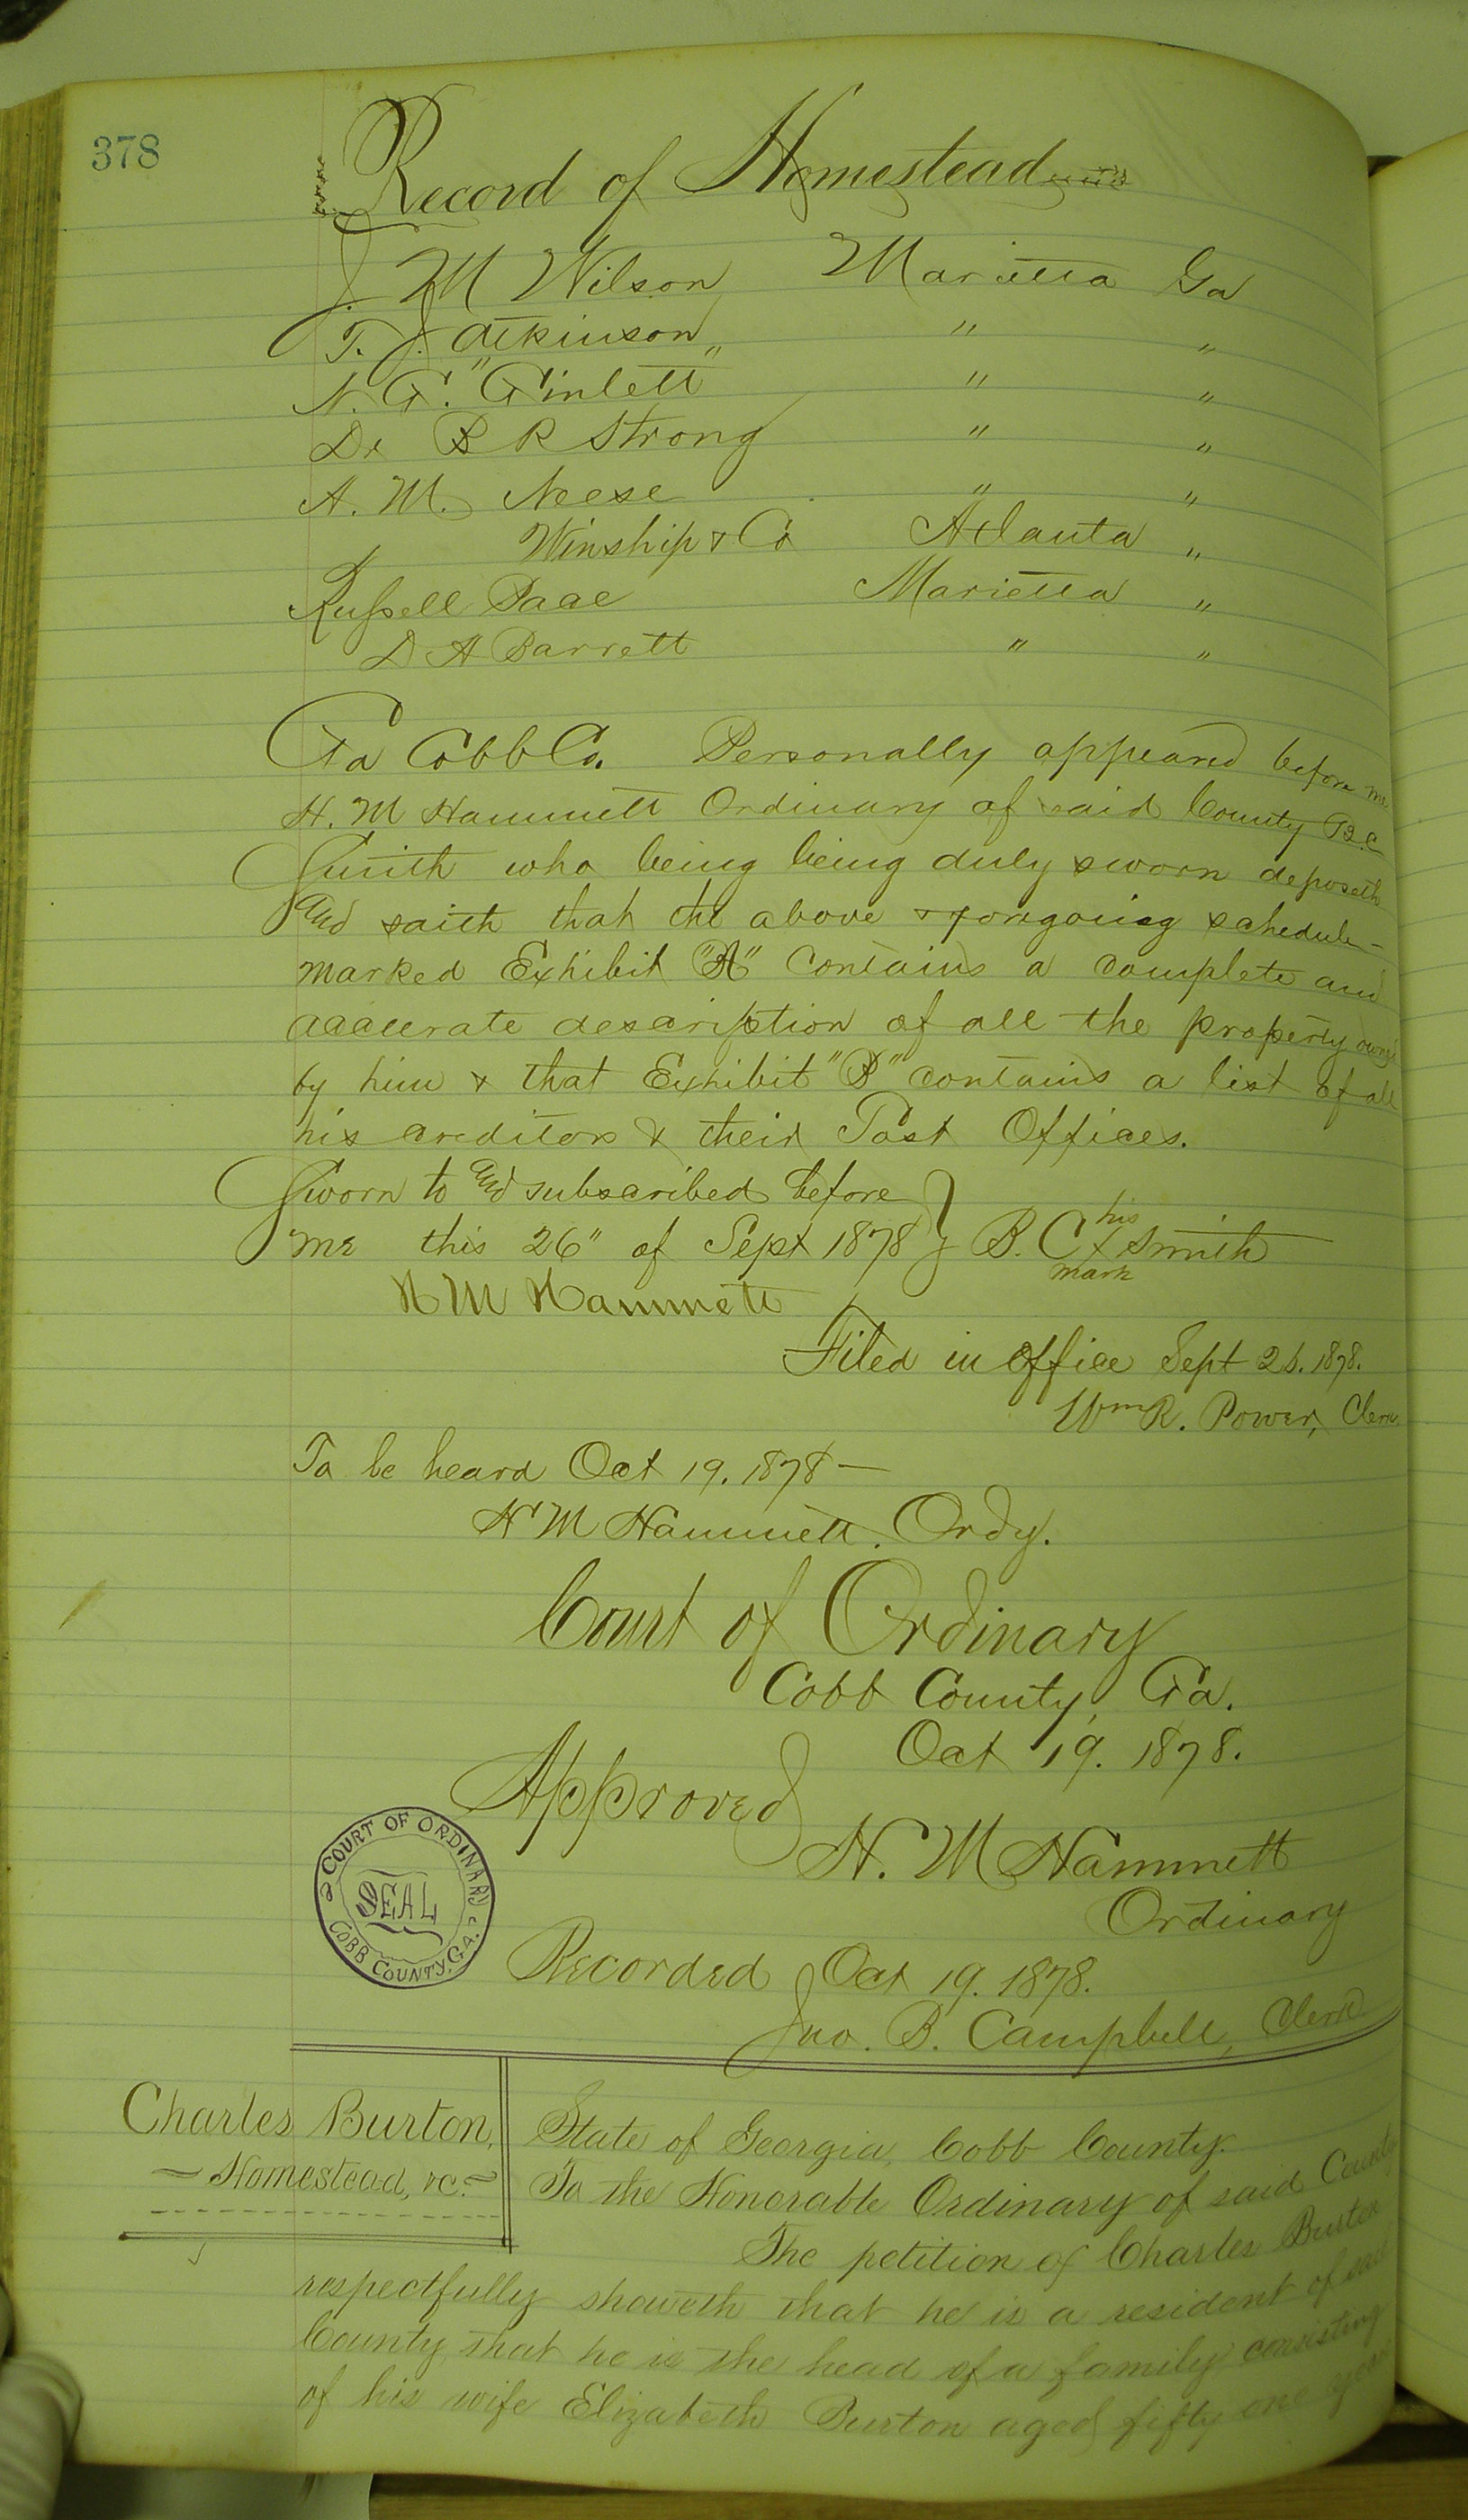 378
Record of Homestead
J. M Wilson Marietta Ga
T. J. Atkinson " "
N. G. "Gimlett" " "
Dr B R Strong " "
A. M. Neese " "
Winship & Co Atlanta "
Russell Page Marietta "
D A Barrett " "
Ga Cobb Co. Personally appeared before me
H. M Hammett Ordinary of said County B. C
Smith who being being duly sworn deposeth
and saith that the above & foregoing schedule
marked Exhibit "A" contains a complete and
accurate description of all the property owned
by him & that Exhibit "B" contains a list of all
his creditors & their Post Offices.
Sworn to and subscribed before
me this 26" of Sept 1878 } B. C his x mark Smith
H M Hammett
Filed in office Sept 26. 1878.
Wm R. Power, Clerk
To be heard Oct 19. 1878 —
H M Hammett. Ordy.
Court of Ordinary
Cobb County, Ga.
Oct 19. 1878.
Approved
H. M Hammett
Ordinary
COURT OF ORDINARY
SEAL
COBB COUNTY, GA.
Recorded Oct 19. 1878.
Jno. B. Campbell, Clerk
Charles Burton,
Homestead, &c.
State of Georgia, Cobb County.
To the Honorable Ordinary of said County
The petition of Charles Burton
respectfully showeth that he is a resident of said
County, that he is the head of a family consisting
of his wife Elizabeth Burton aged fifty one years